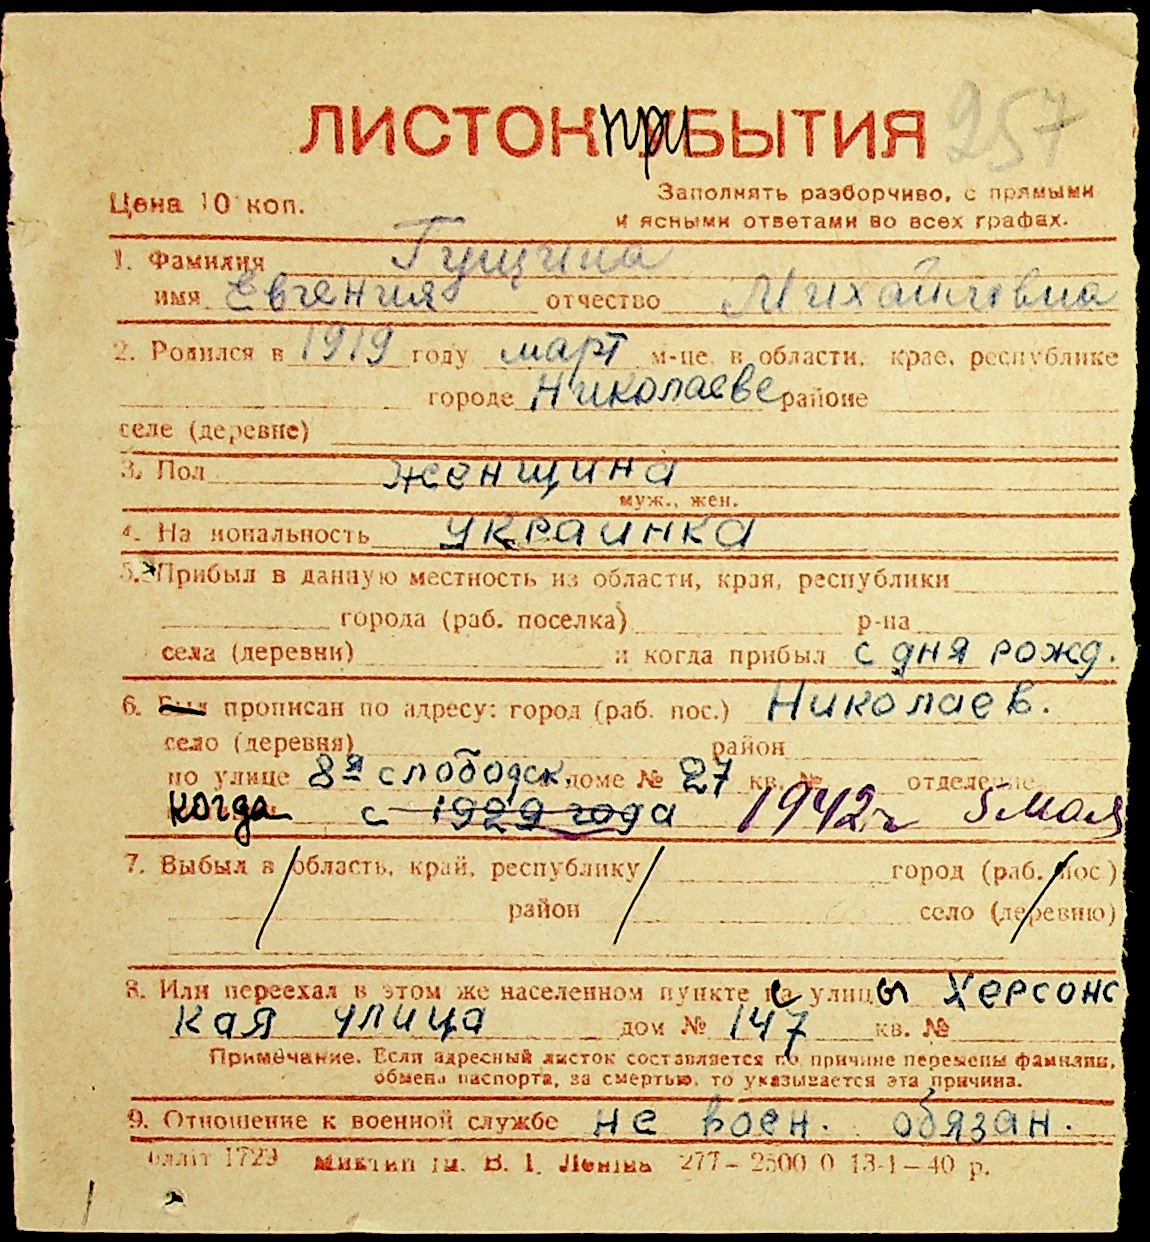 ЛИСТОК при БЫТИЯ 257
Цена 10 коп.
Заполнять разборчиво, с прямыми
и ясными ответами во всех графах.
1. Фамилия Гущина
имя Евгения отчество Михайловна
2. Родился в 1919 году март м-це, в области, крае, республике
городе Николаеве районе
селе (деревне)
3. Пол женщина
муж., жен.
4. На иональность украинка
5. Прибыл в данную местность из области, края, республики
города (раб. поселка) р-на
села (деревни) и когда прибыл с дня рожд.
6. Был прописан по адресу: город (раб. пос.) Николаев.
село (деревня) район
по улице 8я слободск. доме № 27 кв. № отделение
когда с 1929 года 1942 г 5 мая
7. Выбыл в область, край, республику город (раб. пос.)
район село (деревню)
8. Или переехал в этом же населенном пункте с улицы Херсонс
кая улица дом № 147 кв. №
Примечание. Если адресный листок составляется по причине перемены фамилии,
обмена паспорта, за смертью, то указывается эта причина.
9. Отношение к военной службе не воен. обязан.
1729 им. В. І. Леніна 277—2500 0 13-1—40 р.